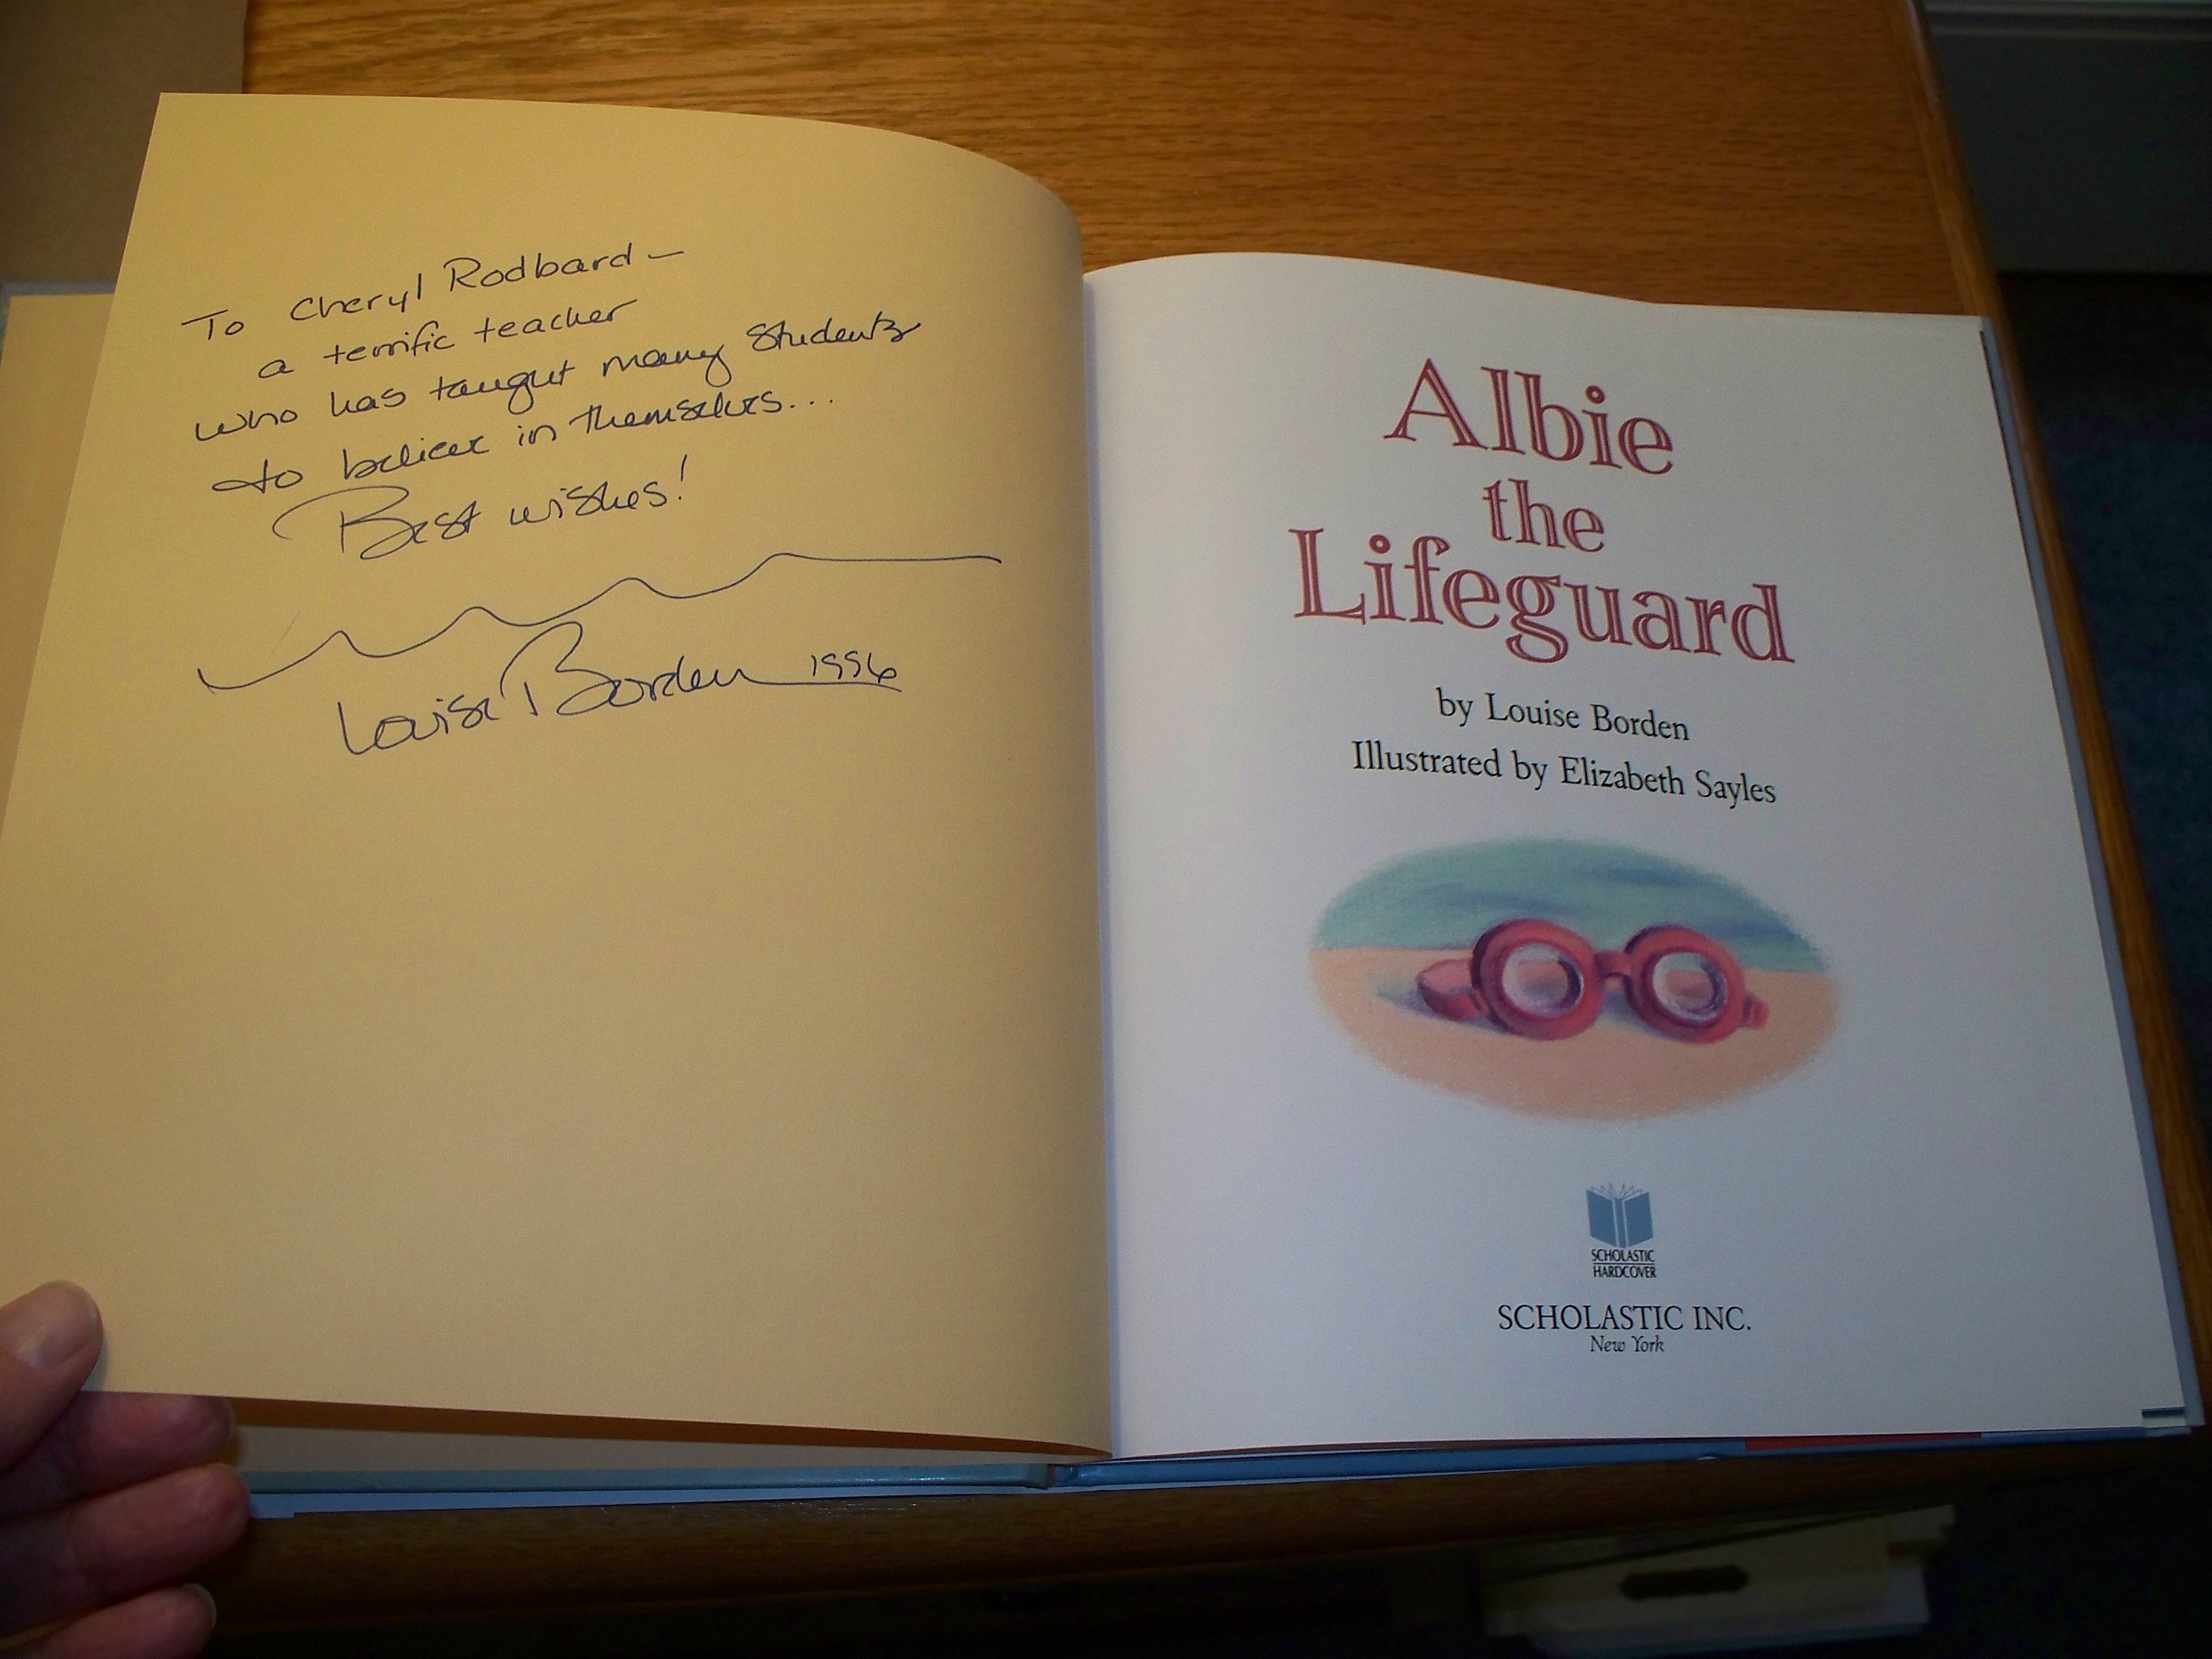 To Cheryl Rodbard —
a terrific teacher
who has taught many students
to believe in themselves...
Best wishes!
Louise Borden 1996
Albie
the
Lifeguard
by Louise Borden
Illustrated by Elizabeth Sayles
SCHOLASTIC
HARDCOVER
SCHOLASTIC INC.
New York